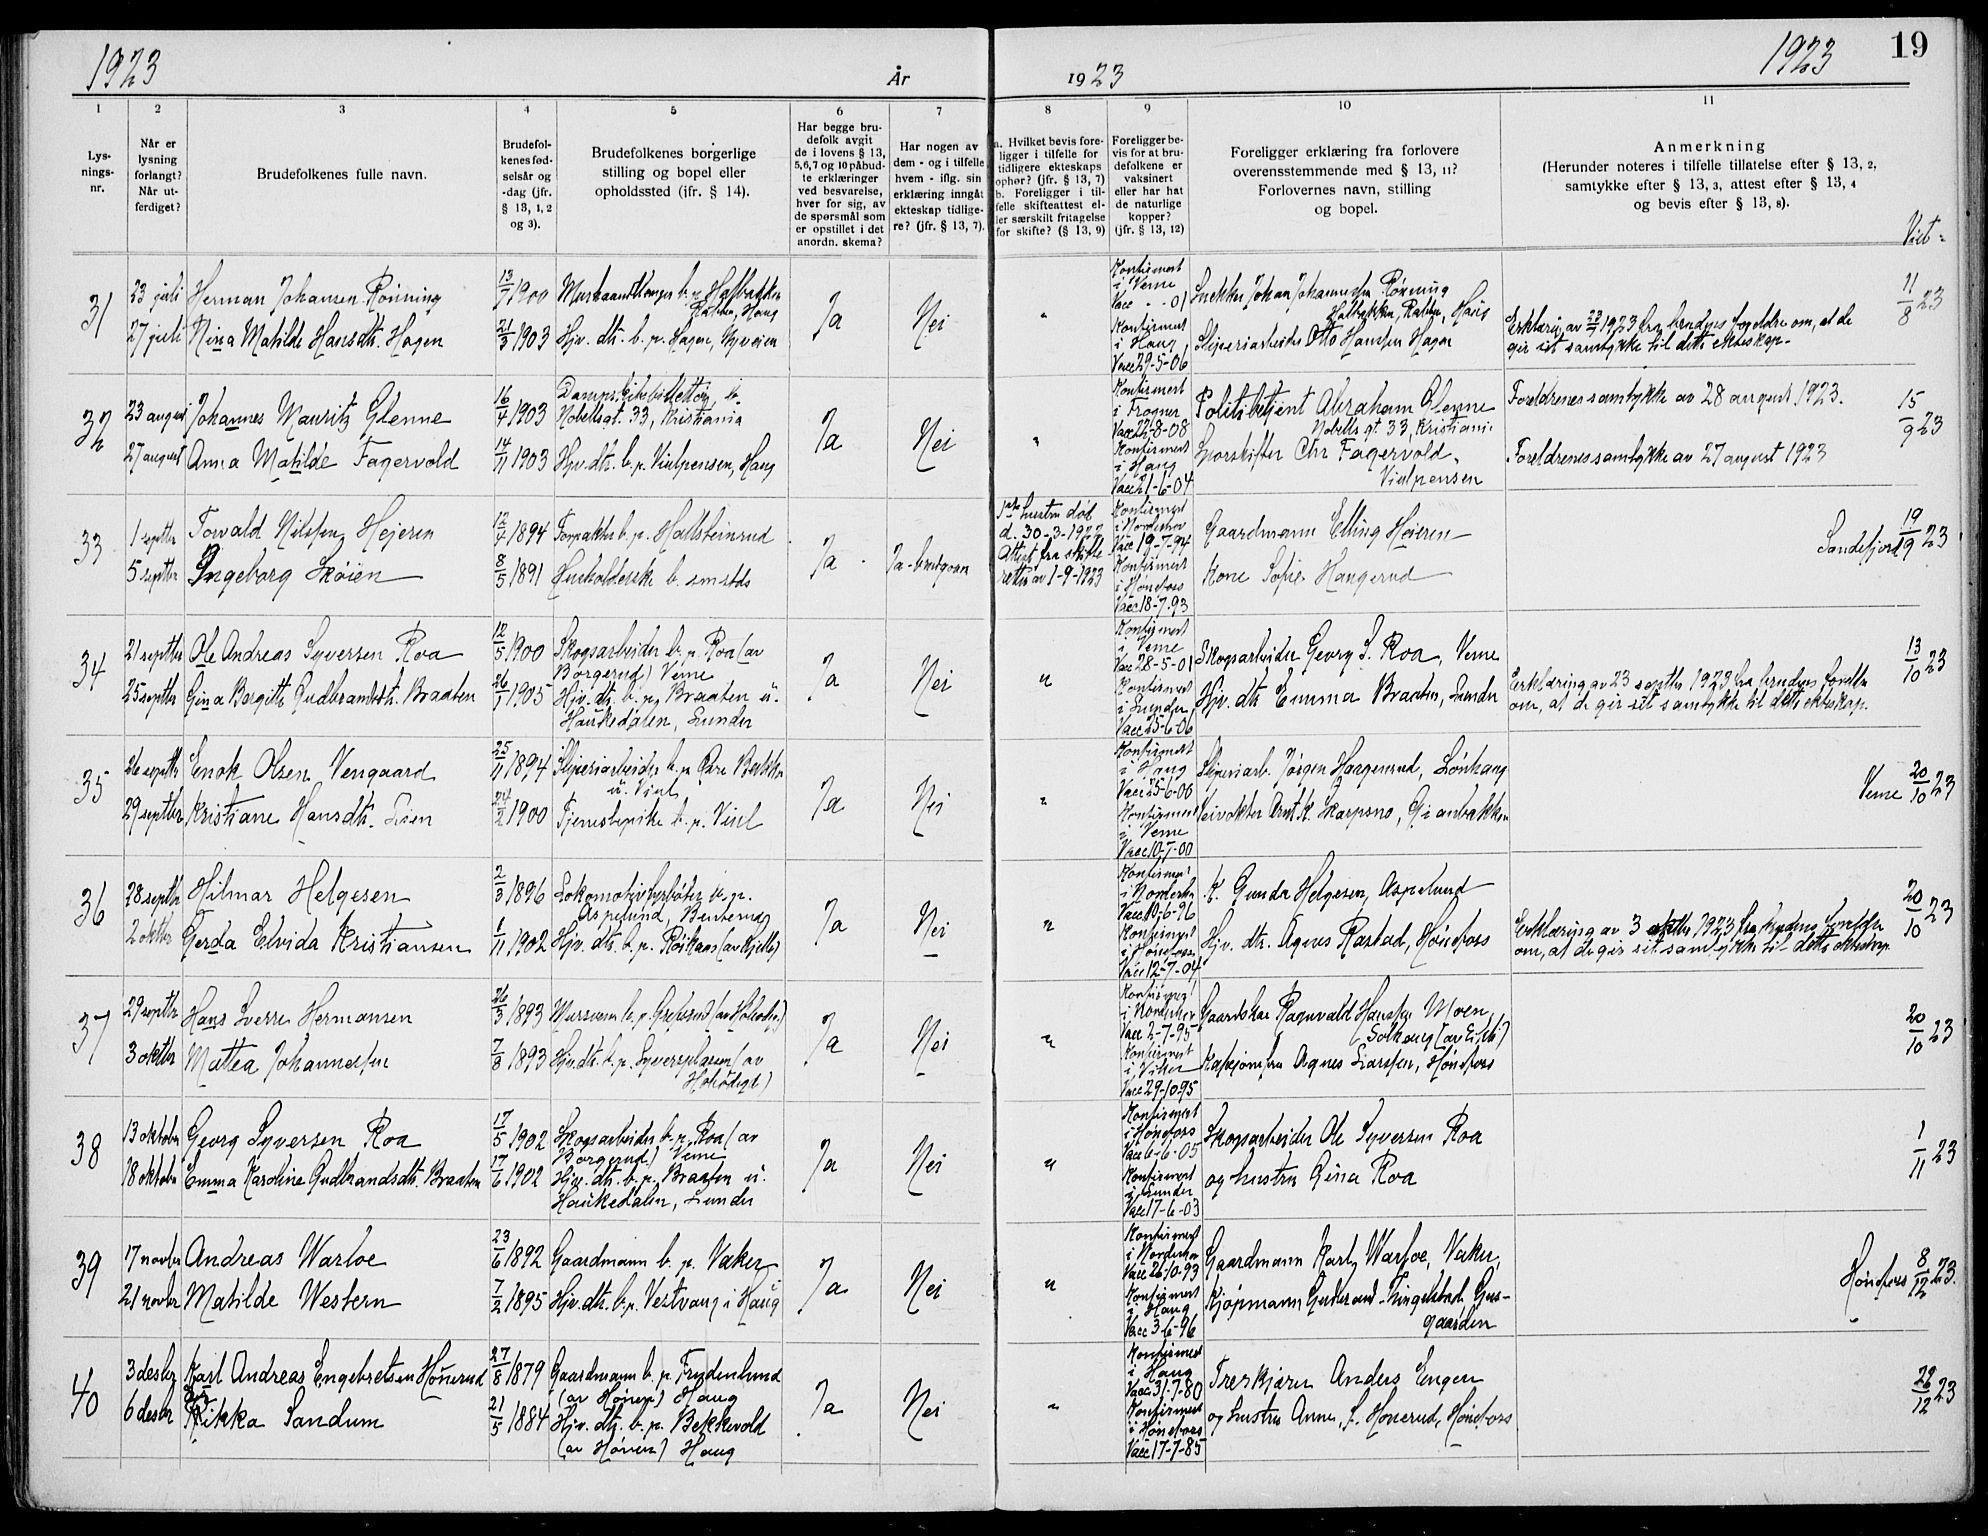 1923
År
1923
1923
19
1
2
3
4
5
6
7
8
9
10
11
Lys-
nings-
nr.
Når er
lysning
forlangt?
Når ut-
ferdiget?
Brudefolkenes fulle navn.
Brudefol-
kenes fød-
selsår og
-dag (jfr.
§ 13, 1, 2
og 3).
Brudefolkenes borgerlige
stilling og bopel eller
opholdssted (ifr. § 14).
Har begge bru-
defolk avgit
de i lovens § 13,
5,6,7 og 10 påbud-
te erklæringer
ved besvarelse,
hver for sig, av
de spørsmål som
er opstillet i det
anordn. skema?
Har nogen av
dem - og i tilfelle
hvem - iflg. sin
erklæring inngåt
ekteskap tidlige-
re? (jfr. § 13, 7).
a. Hvilket bevis fore-
ligger i tilfelle for
tidligere ekteskaps
ophør? (jfr. § 13, 7)
b. Foreligger i til-
felle skifteattest el-
ler særskilt fritagelse
for skifte? (§ 13, 9)
Foreligger be-
vis for at bru-
defolkene er
vaksinert
eller har hat
de naturlige
kopper?
(jfr. § 13, 12)
Foreligger erklæring fra forlovere
overensstemmende med § 13, 11?
Forlovernes navn, stilling
og bopel.
Anmerkning
(Herunder noteres i tilfelle tillatelse efter § 13, 2,
samtykke efter § 13, 3, attest efter § 13, 4
og bevis efter § 13, 8).
Viet
31
23 juli
27 juli
Herman Johansen Rönning
Nina Matilde Hansdtr. Hagen
13/7 1900
21/3 1903
Hjv. dtr. b. p. Hagen,
Ja
Nei
"
Konfirmert
i Verne
Vacc - - 01
Konfirmert
i Haug
Vacc 29-5-06
Snekker Johan Johannessen Rönning
Halbakken, Ratien, Haug
Sliperiarbeider Otto Hansen Hagen
Erklæring av 23/7 1923 fra brudens foreldre om, at de
gir sit samtykke til dette ekteskap.
11/8 23
32
23 august
27 august
Johannes Mauritz Glenne
Anna Matilde Fagervold
16/4 1903
14/11 1903
Nobelsgt. 33, Kristiania
Hjv. dtr. b. p. Viulpensen, Haug
Ja
Nei
"
Konfirmert
i Frogner
Vacc 22-8-08
Konfirmert
i Haug
Vacc 21-6-04
Politibetjent Abraham Glenne
Nobels gt. 33, Kristiania
Sporskifter Chr Fagervold,
Viulpensen
Foreldrenes samtykke av 28 august 1923.
Foreldrenes samtykke av 27 august 1923
15/9 23
33
1 septbr
5 septbr
Torvald Nilssen Hejeren
Ingeborg Sköien
12/4 1894
8/5 1891
Forpakter b. p. Hallsteinrud
Husholderske b. smstds
Ja
Ja - brudgom
1ste hustru död
d. 30-3-1922
Attest fra skifte
retten av 1-9-1923
Konfirmert
i Norderhov
Vacc 19-7-94
Konfirmert
i Hönefoss
Vacc 18-7-93
Gaardmann Elling Höieren
Kone Sofie Haugerud
Sandefjord 19/9 23
34
21 septbr
25 septbr
Ole Andreas Syversen Roa
Gina Bergitte Gudbrandsdtr. Braaten
12/5 1900
26/1 1905
Skogsarbeider b. p. Roa (av
Borgerud) Verne
Hjv. dtr. b. p. Braaten u.
Haukedalen, Lunder
Ja
Nei
"
Konfirmert
i Verne
Vac 28-5-01
Konfirmert
i Lunder
Vacc 25-6-06
Skogsarbeider Georg S. Roa, Verne
Hjv. dtr Emma Braaten, Lunder
Erklæring av 23 septbr 1923 fra brudens foreldre
om, at de gir sit samtykke til dette ekteskap.
13/10 23
35
26 septbr
29 septbr
Enok Olsen Vengaard
Kristiane Hansdtr. Lien
25/11 1894
24/2 1900
Sliperiarbeider b. p. Övre
u. Viul
Tjenestepike b. p. Viul
Ja
Nei
"
Konfirmert
i Haug
Vacc 25-6-00
Konfirmert
i Verne
Vacc 10-7-00
Sliperiarb. Jörgen Haugerud, Lönhaug
Veivokter Arnt K. Skarpsno,
Verne 20/10 23
36
28 septbr
2 oktbr
Hilmar Helgesen
Gerda Elvida Kristiansen
2/3 1896
1/11 1902
Lokomotivfyrböter b. p.
Aspelund, Benterud
Hjv. dtr. b. p.
Ja
Nei
"
Konfirmert
i Norderhov
Vacc 10-6-96
Konfirmert
i Hönefoss
Vacc 12-7-04
K. Gunda Helgesen, Aspelund
Hjv. dtr. Agnes Rastad, Hönefoss
Erklæring av 3 oktbr 1923 fra brudens foreldre
om, at de gir sit samtykke til dette ekteskap
20/10 23
37
29 septbr
3 oktbr
Hans Sverre Hermansen
Mattea Johannessen
26/3 1893
7/8 1893
Hjv. dtr. b. p. (av
Ja
Nei
"
Konfirmert
i Norderhov
Vacc 2-7-95
Konfirmert
i Viker
Vacc 29-10-95
Ragnvald Hansen Moen
Agnes Larssen, Hönefoss
20/10 23
38
13 oktober
18 oktober
Georg Syversen Roa
Emma Karoline Gudbrandsdtr. Braaten
17/5 1902
17/6 1902
Skogsarbeider b. p. Roa (av
Borgerud) Verne
Hjv. dtr. b. p. Braaten u.
Haukedalen, Lunder
Ja
Nei
"
Konfirmert
i Hönefoss
Vacc 6-6-05
Konfirmert
i Lunder
Vacc 17-6-03
Skogsarbeider Ole Syversen Roa
og hustru Gina Roa
1/11 23
39
17 novbr
21 novbr
Andreas Warloe
Matilde Western
23/6 1892
7/2 1895
Gaardmann b. p. Vaker
Hjv. dtr. b. p. Vestvang i Haug
Ja
Nei
"
Konfirmert
i Norderhov
Vacc 26-10-93
Konfirmert
i Haug
Vacc 3-6-96
Gaardmann Karl Warloe, Vaker,
Kjöpmann Gudbrand Tingelstad,
gaarden
Hönefoss 8/12 23.
40
3 desbr
6 desbr
Karl Andreas Engebretsen Hönerud
Rikka Sandum
27/8 1879
21/5 1884
Gaardmann b. p. Frydenlund
(av Hönen) Haug
Hjv. dtr. b. p. Bekkevold
(av Hönen) Haug
Ja
Nei
"
Konfirmert
i Haug
Vacc 31-7-80
Konfirmert
i Hönefoss
Vacc 17-7-85
Anders Engen
og hustru Anne, f. Hönerud, Hönefoss
22/12 23